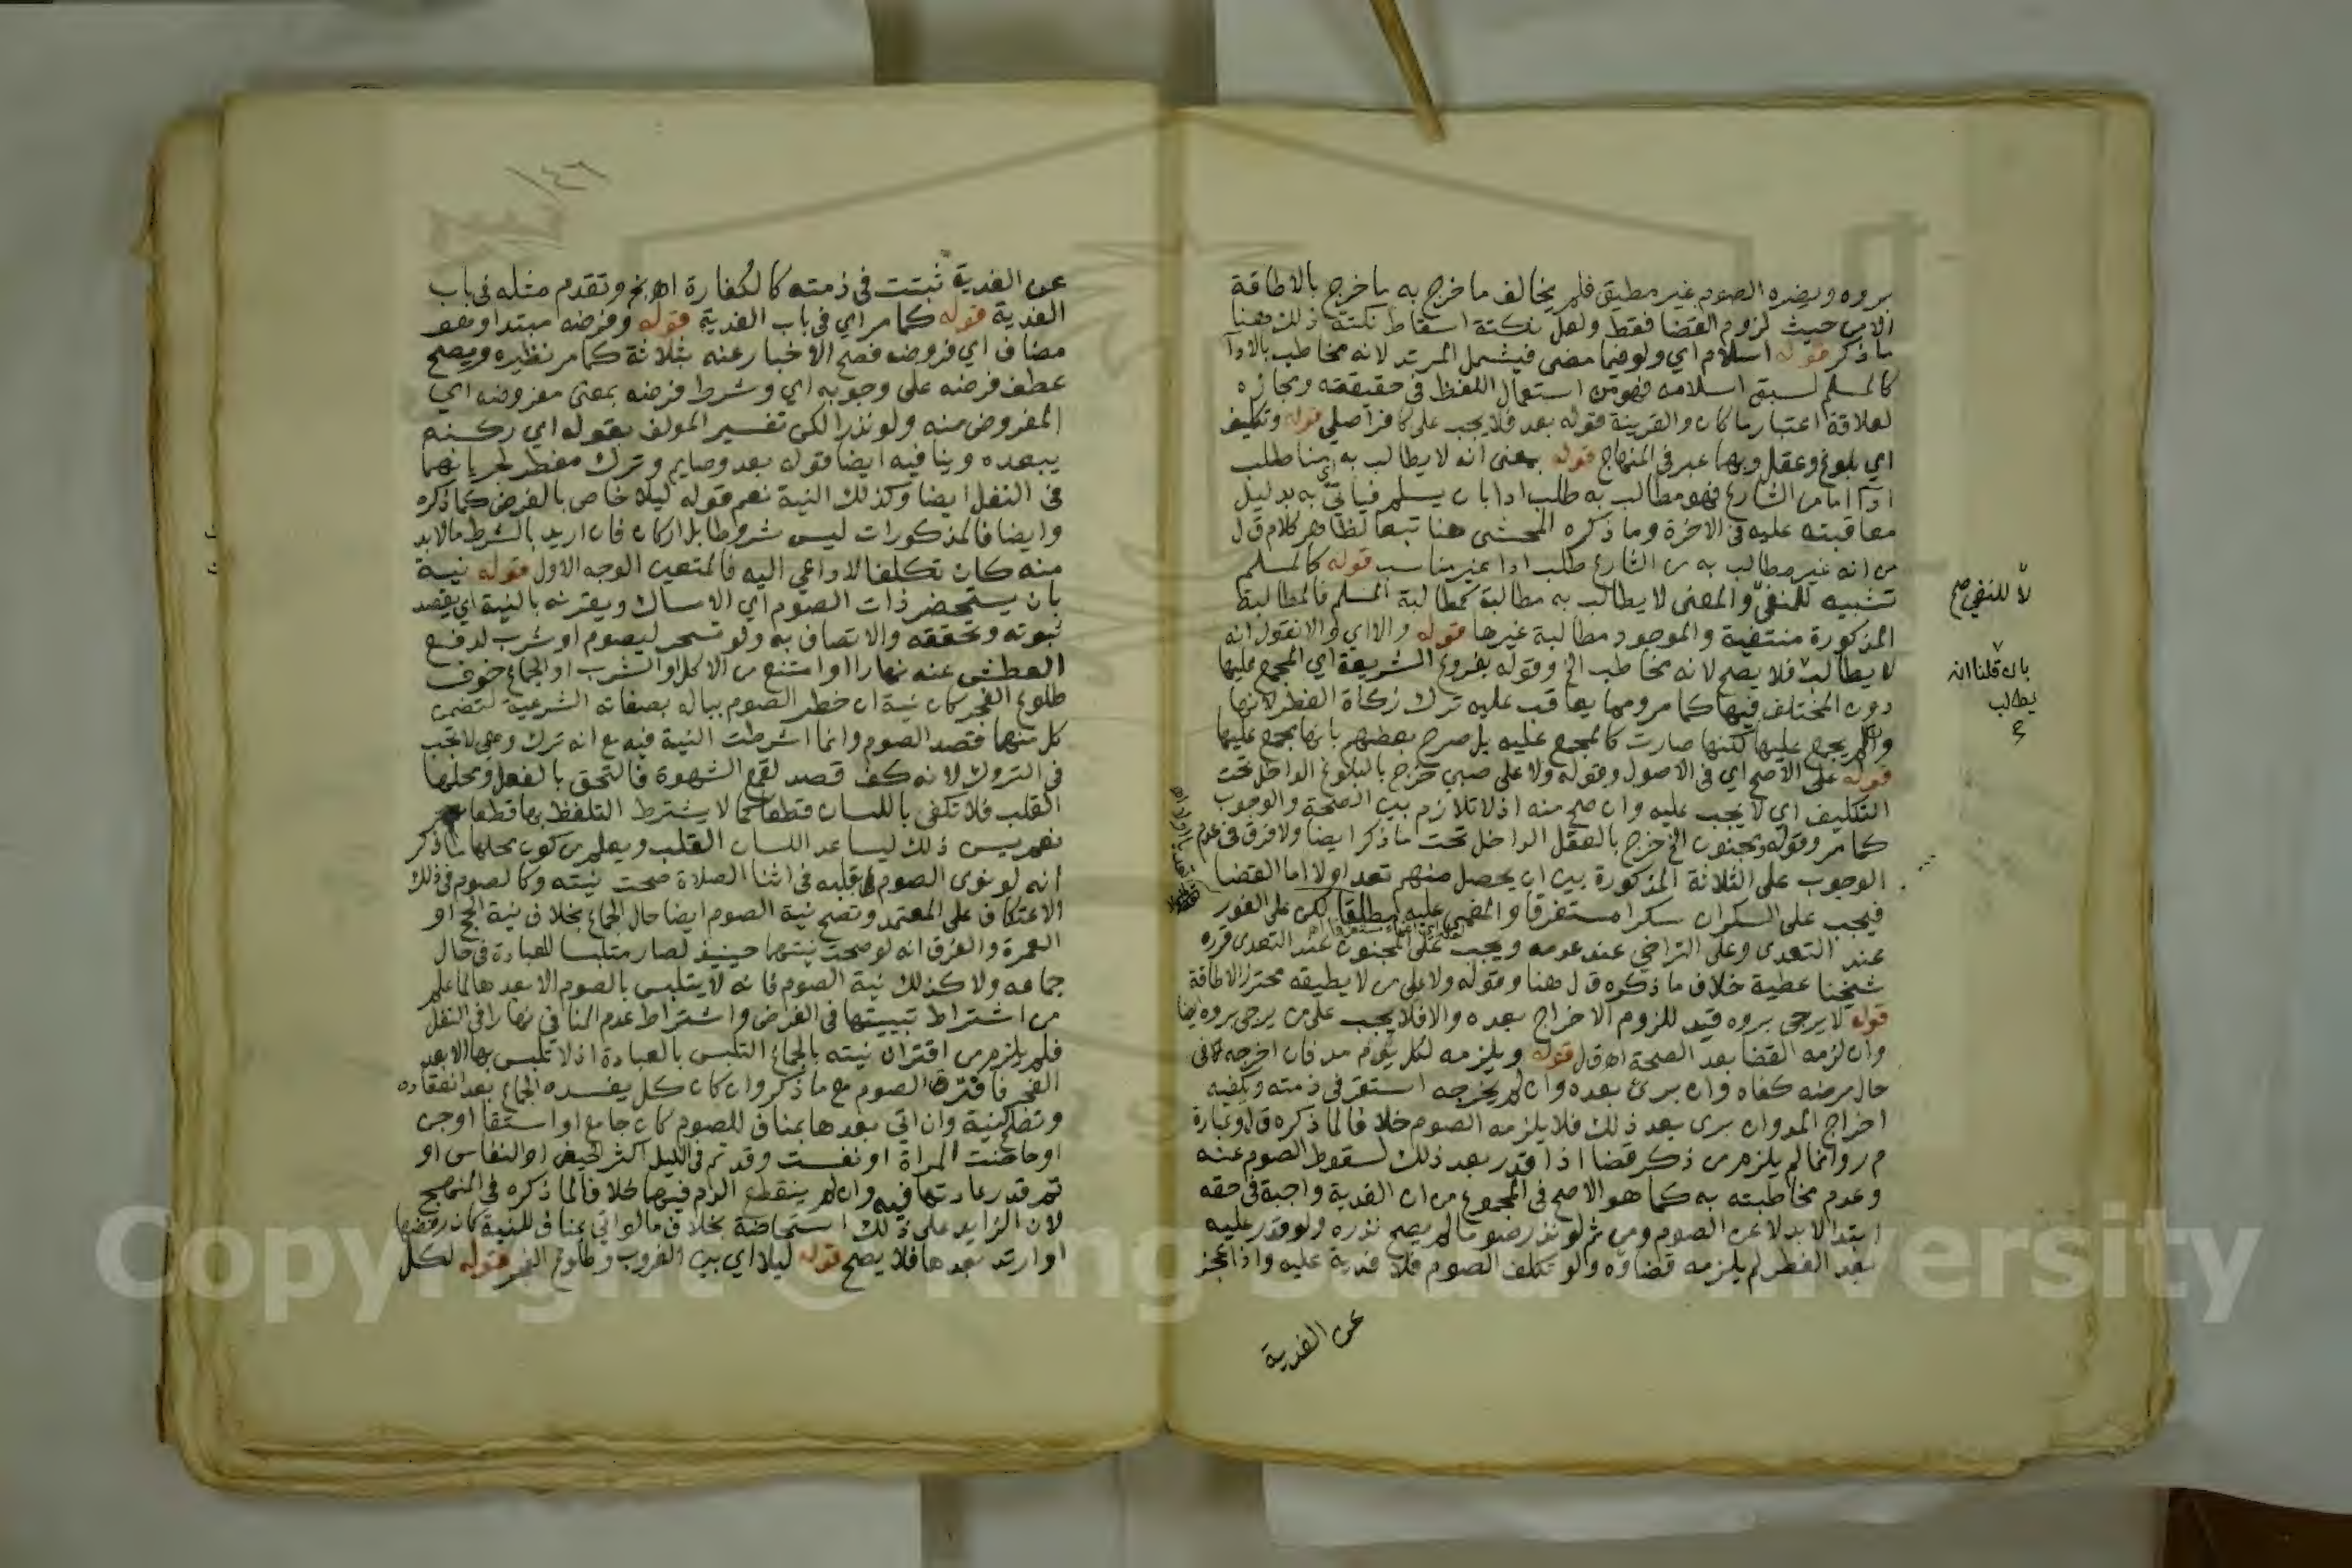 بروه ويضره الصوم غير مطيق فلم يخالف ما خرج به ما خرج بالاطاقة
الا من حيث لزوم القضا فقط ولعل نكتة اسقاط نكتة ذلك هنا
ما ذكر قوله اسلام اي ولو فيما مضى فيشمل المرتد لانه مخاطب بالادآ
كالمسلم لسبق اسلامه فهو من استعمال اللفظ في حقيقته ومجازه
لعلاقة اعتبار ما كان والقرينة قوله بعد فلا يجب على كافر اصلي قوله وتكليف
اي بلوغ وعقل وبهما عبر في المنهاج قوله بمعنى انه لا يطالب به اي منا طلب
ادآ اما من الشارع فهو مطالب به طلب ادا بان يسلم فياتي به بدليل
معاقبته عليه في الاخرة وما ذكره المحشي هنا تبعا لظاهر كلام ق ل
من انه غير مطالب به من الشارع طلب ادا غير مناسب قوله كالمسلم
تشبيه للمنفي والمعنى لا يطالب به مطالبة كمطالبة المسلم فالمطالبة
المذكورة منتفية والموجود مطالبة غيرها قوله والا اي والا نقول انه
لا يطالب فلا يصح لانه مخاطب الخ وقوله بفروع الشريعة اي المجمع عليها
دون المختلف فيها كما مر ومما يعاقب عليه ترك زكاة الفطر لانها
وان لم يجمع عليها لكنها صارت كالمجمع عليه بل صرح بعضهم بانها مجمع عليها
قوله على الاصح اي في الاصول وقوله ولا على صبي خرج بالبلوغ الداخل تحت
التكليف اي لا يجب عليه وان صح منه اذ لا تلازم بين الصحة والوجوب
كما مر وقوله ومجنون الخ خرج بالعقل الداخل تحت ما ذكر ايضا ولا فرق في عدم
الوجوب على الثلاثة المذكورة بين ان يحصل منهم تعد اولا اما القضا
فيجب على السكران سكرا مستغرقا والمغمى عليه مطلقا لكن على الفور
عند التعدى وعلى التراخي عند عدمه ويجب على المجنون عند التعدى قرره
شيخنا عطية خلاف ما ذكره ق ل هنا وقوله ولا على من لا يطيقه محترز الاطاقة
قوله لا يرجى بروه قيد للزوم الاخراج بعده والا فلا يجب على من يرجى بروه ايضا
وان لزمه القضا بعد الصحة اه ق ل قوله ويلزمه لكل يوم مد فان اخرجه في
حال مرضه كفاه وان برئ بعده وان لم يخرجه استقر في ذمته ويكفيه
اخراج المد وان برى بعد ذلك فلا يلزمه الصوم خلافا لما ذكره ق ل وعبارة
م ر وانما لم يلزم من ذكر قضا اذا قدر بعد ذلك لسقوط الصوم عنه
وعدم مخاطبته به كما هو الاصح في المجموع من ان الفدية واجبة في حقه
ابتدا لا بدلا عن الصوم ومن ثم لو نذر صوما لم يصح نذره ولو قدر عليه
بعد الفطر لم يلزمه قضاوه ولو تكلف الصوم فلا فدية عليه واذا عجز
عن الفدية
لا للنفي صح
بان قلنا انه
يطالب
عن الفدية ثبتت في ذمته كالكفارة اه بخ وتقدم مثله في باب
الفدية قوله كما مر اي في باب الفدية قوله وفرضه مبتدا وهو
مضاف اي فروضه فصح الاخبار عنه بثلاثة كما مر نظيره ويصح
عطف فرضه على وجوبه اي وشرط فرضه بمعنى مفروضه اي
المفروض منه ولو نذرا لكن تفسير المولف بقوله اي ركنه
يبعده وينافيه ايضا قوله بعد وصايم وترك مفطر لجريانهما
في النفل ايضا وكذلك النية نعم قوله ليلا خاص بالفرض كما ذكره
وايضا فالمذكورات ليس شروطا بل اركان فان اريد بالشرط مالابد
منه كان تكلفا لا داعي اليه فالمتعين الوجه الاول قوله نية
بان يستحضر ذات الصوم اي الامساك ويقرنه بالنية اي يقصد
ثبوته وتحققه والاتصاف به ولو تسحر ليصوم او شرب لدفع
العطش عنه نهارا او امتنع من الاكل او الشرب او الجماع خوف
طلوع الفجر كان نية ان خطر الصوم بباله بصفاته الشرعية لتضمن
كل منهما قصد الصوم وانما اشترطت النية فيه مع انه ترك وهي لا تجب
في التروك لانه كف قصد لقمع الشهوة فالتحق بالفعل ومحلها
القلب فلا تكفى باللسان قطعا كما لا يشترط التلفظ بها قطعا
نعم يسن ذلك ليساعد اللسان القلب ويعلم من كون محلها ما ذكر
انه لو نوى الصوم بقلبه في اثنا الصلاة صحت نيته وكالصوم في ذلك
الاعتكاف على المعتمد وتصح نية الصوم ايضا حال الجماع بخلاف نية الحج او
العمرة والفرق انه لو صحت نيتهما حينيذ لصار متلبسا للعبادة في حال
جماعه ولا كذلك نية الصوم فانه لا يتلبس بالصوم الا بعدها لما علم
من اشتراط تبييتها في الفرض واشتراط عدم المنافي نهارا في النفل
فلم يلزم من اقتران نيته بالجماع التلبس بالعبادة اذ لا تلبس بها الا بعد
الفجر فافترق الصوم مع ما ذكر وان كان كل يفسده الجماع بعد انعقاده
وتصح نية وان اتي بعدها بمناف للصوم كان جامع او استقا او جن
او حاضت المراة او نفست وقد تم في الليل اكثر الحيض او النفاس او
تم قدر عادتها فيه وان لم ينقطع الدم فيهما خلافا لما ذكره في المنهج
لان الزايد على ذلك استحاضة بخلاف ما لو اتي بمناف للنية كان رفضها
او ارتد بعدها فلا يصح قوله ليلا اي بين الغروب وطلوع الفجر قوله لكل
Copyright © King Saud University